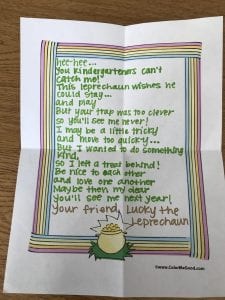 hee-hee...
you kindergarteners can't
catch me!
This leprechaun wishes he
could stay...
and play
But your trap was too clever
so you'll see me never!
I may be a little tricky
and move too quickly...
But I wanted to do something
kind,
so I left a treat behind!
Be nice to each other
and love one another
Maybe then my dear
you'll see me next year!
your friend, Lucky the
Leprechaun
©www.ColorMeGood.com